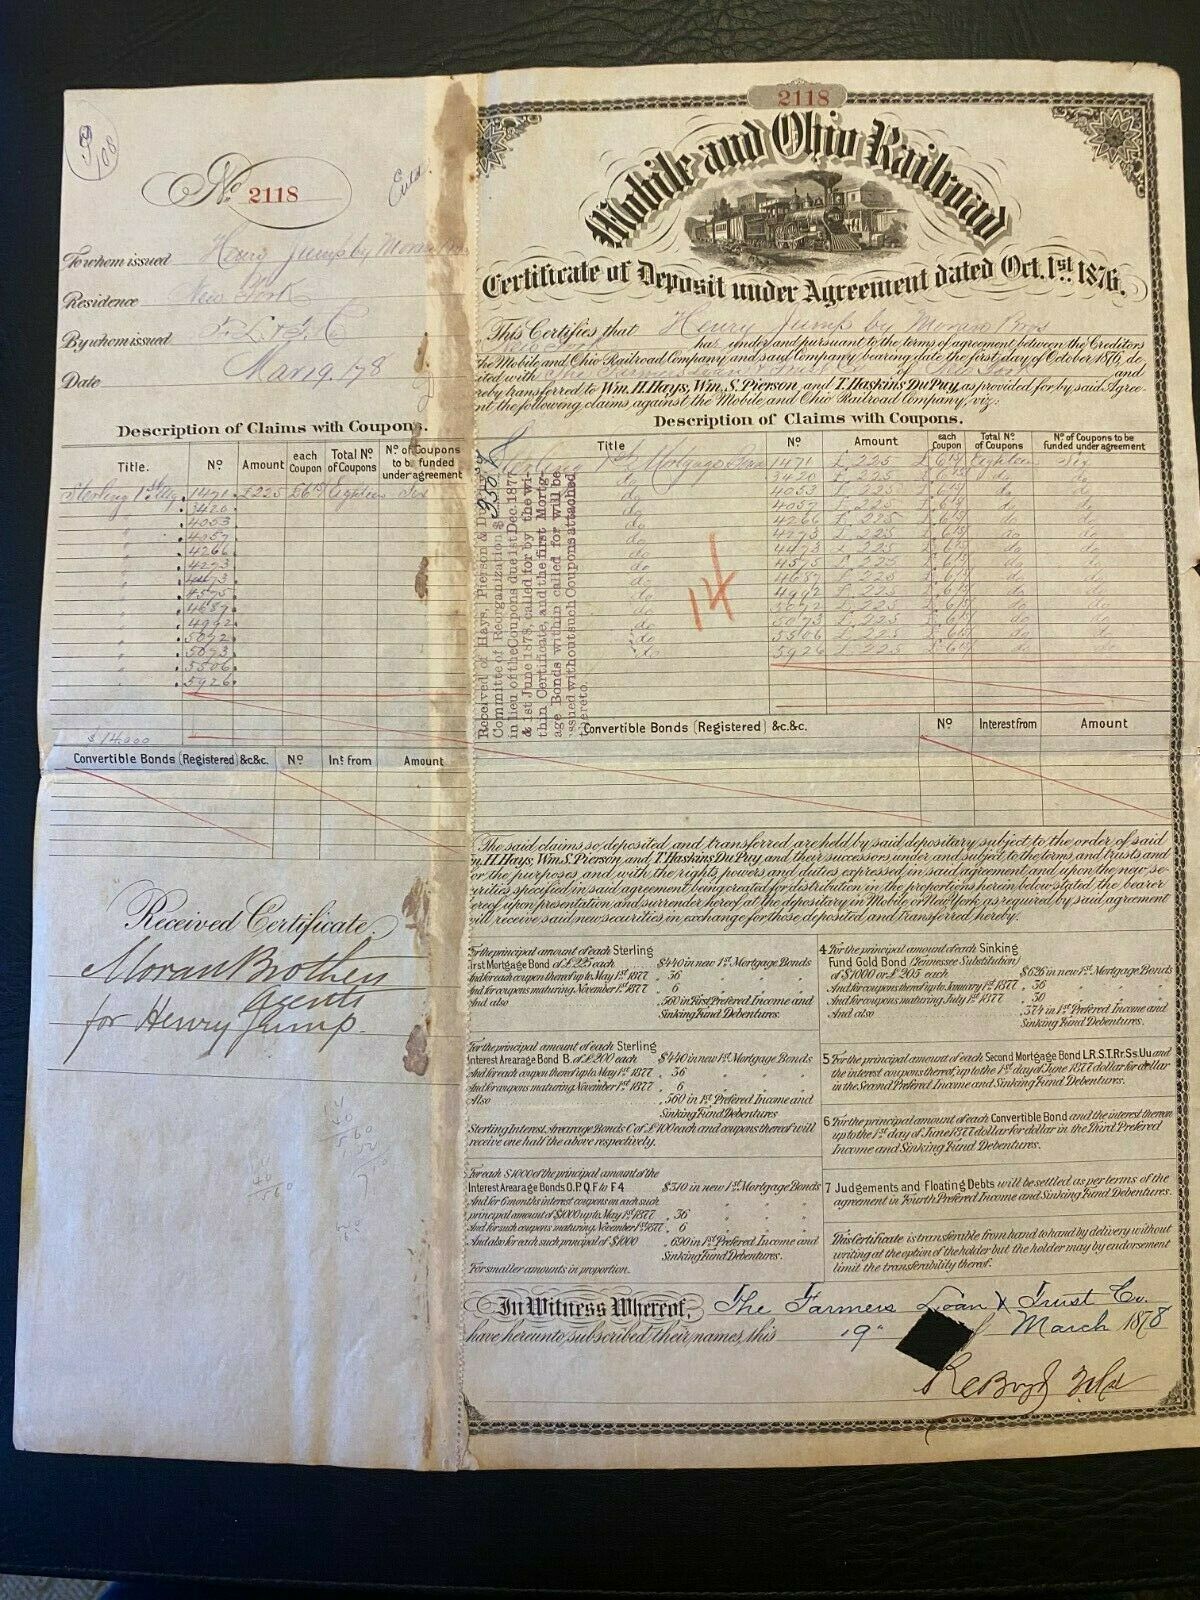 108
No. 2118
To whom issued Henry Jump by Moran Bros
Residence New York
By whom issued F. L. & T. Co
Date Mar 19. 178
Description of Claims with Coupons.
Title. No Amount each Coupon Total No of Coupons No of Coupons to be funded under agreement
Sterling 1st Mtg. 1471 £225 £6 19 Eighteen Six
3420
4053
4057
4266
4273
4473
4575
4687
4992
5072
5073
5506
5926
$14,000
Convertible Bonds (Registered) &c.&c. No Int. from Amount
Received Certificate
Moran Brothers
Agents
for Henry Jump.
2118
Mobile and Ohio Railroad
Certificate of Deposit under Agreement dated Oct. 1st 1876.
This Certifies that Henry Jump by Moran Bros
has under and pursuant to the terms of agreement between the Creditors
the Mobile and Ohio Railroad Company and said Company bearing date the first day of October 1876, de
ited with The Farmers Loan & Trust Co of New York and
reby transferred to Wm. H. Hays, Wm. S. Pierson, and T. Haskins Du Puy, as provided for by said Agree-
nt the following claims, against the Mobile and Ohio Railroad Company, viz:
Description of Claims with Coupons.
Title No Amount each Coupon Total No of Coupons No of Coupons to be funded under agreement
Sterling 1st Mortgage Bond 1471 £225 £6 19 Eighteen Six
do 3420 £225 £6 19 do do
do 4053 £225 £6 19 do do
do 4057 £225 £6 19 do do
do 4266 £225 £6 19 do do
do 4273 £225 £6 19 do do
do 4473 £225 £6 19 do do
do 4575 £225 £6 19 do do
do 4687 £225 £6 19 do do
do 4992 £225 £6 19 do do
do 5072 £225 £6 19 do do
do 5073 £225 £6 19 do do
do 5506 £225 £6 19 do do
do 5926 £225 £6 19 do do
14
Received of Hays, Pierson & Du Puy
Committee of Reorganization $ 350.
in lieu of the Coupons due 1st Dec. 1877
& 1st June 1878, called for by the wi-
thin Certificate, and the first Mortg-
age Bonds within called for will be
issued without such Coupons attached
hereto.
Convertible Bonds (Registered) &c.&c. No Interest from Amount
The said claims so deposited and transferred are held by said depositary subject to the order of said
m. H. Hays, Wm. S. Pierson, and T. Haskins Du Puy, and their successors under and subject to the terms and trusts and
or the purposes and, with the rights, powers and duties expressed in said agreement and upon the new se-
urities, specified in said agreement being created for distribution in the proportions herein below stated, the bearer
ereof upon presentation and surrender hereof at the depositary in Mobile or New York as required by said agreement
will receive said new securities in exchange for those deposited and transferred hereby.
For the principal amount of each Sterling
irst Mortgage Bond of £225 each $440 in new 1st Mortgage Bonds
And for each coupon thereof up to May 1st 1877 . 36 " " "
And for coupons maturing November 1st 1877 . 6 " " "
And also .560 in First Prefered Income and
Sinking Fund Debentures.
For the principal amount of each Sterling
Interest Arearage Bond B. of £200 each $440 in new 1st Mortgage Bonds
And for each coupon thereof up to May 1st 1877 . 36 " " "
And for coupons maturing November 1st 1877 . 6 " " "
Also . 560 in 1st Prefered Income and
Sinking Fund Debentures
Sterling Interest Arearage Bonds C of £100 each and coupons thereof will
receive one half the above respectively.
For each $1000 of the principal amount of the
Interest Arearage Bonds O.P.Q.F to F 4 $310 in new 1st Mortgage Bonds
And for 6 months interest coupons on each such
principal amount of $1000 up to May 1st 1877 . 36 " " "
And for such coupons maturing November 1st 1877 . 6 " " "
And also for each such principal of $1000 . 690 in 1st Prefered Income and
Sinking Fund Debentures.
For smaller amounts in proportion.
4 For the principal amount of each Sinking
Fund Gold Bond (Tennessee Substitution)
of $1000 or £205 each $626 in new 1st Mortgage Bonds
And for each coupon thereof up to January 1st 1877 . 36 " " "
And for coupons maturing July 1st 1877 . 30 " " "
And also . 374 in 1st Prefered Income and
Sinking Fund Debentures.
5 For the principal amount of each Second Mortgage Bond L.R.S.T. Rr. Ss. Uu and
the interest coupons thereof, up to the 1st day of June 1877 dollar for dollar
in the Second Prefered Income and Sinking Fund Debentures.
6 For the principal amount of each Convertible Bond and the interest thereon
up to the 1st day of June 1877 dollar for dollar in the Third Prefered
Income and Sinking Fund Debentures.
7 Judgements and Floating Debts will be settled as per terms of the
agreement in Fourth Prefered Income and Sinking Fund Debentures.
This Certificate is transferable from hand to hand by delivery without
writing at the option of the holder but the holder may by endorsement
limit the transferability thereof.
In Witness Whereof, The Farmers Loan & Trust Co.
have hereunto subscribed their names, this 19" of March 1878